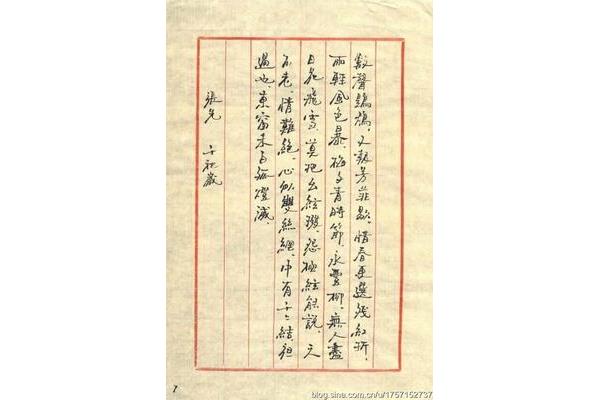 數聲鶗鴂。又報芳菲歇。惜春更選殘紅折。
雨輕風色暴。梅子青時節。永豐柳。無人盡
日花飛雪。莫把幺絃撥。怨極絃能說。天
不老。情難絕。心似雙絲網。中有千〻結。夜
過也。東窗未白孤燈滅。
張先 千秋歲
blog.sina.com.cn/u/1757152737